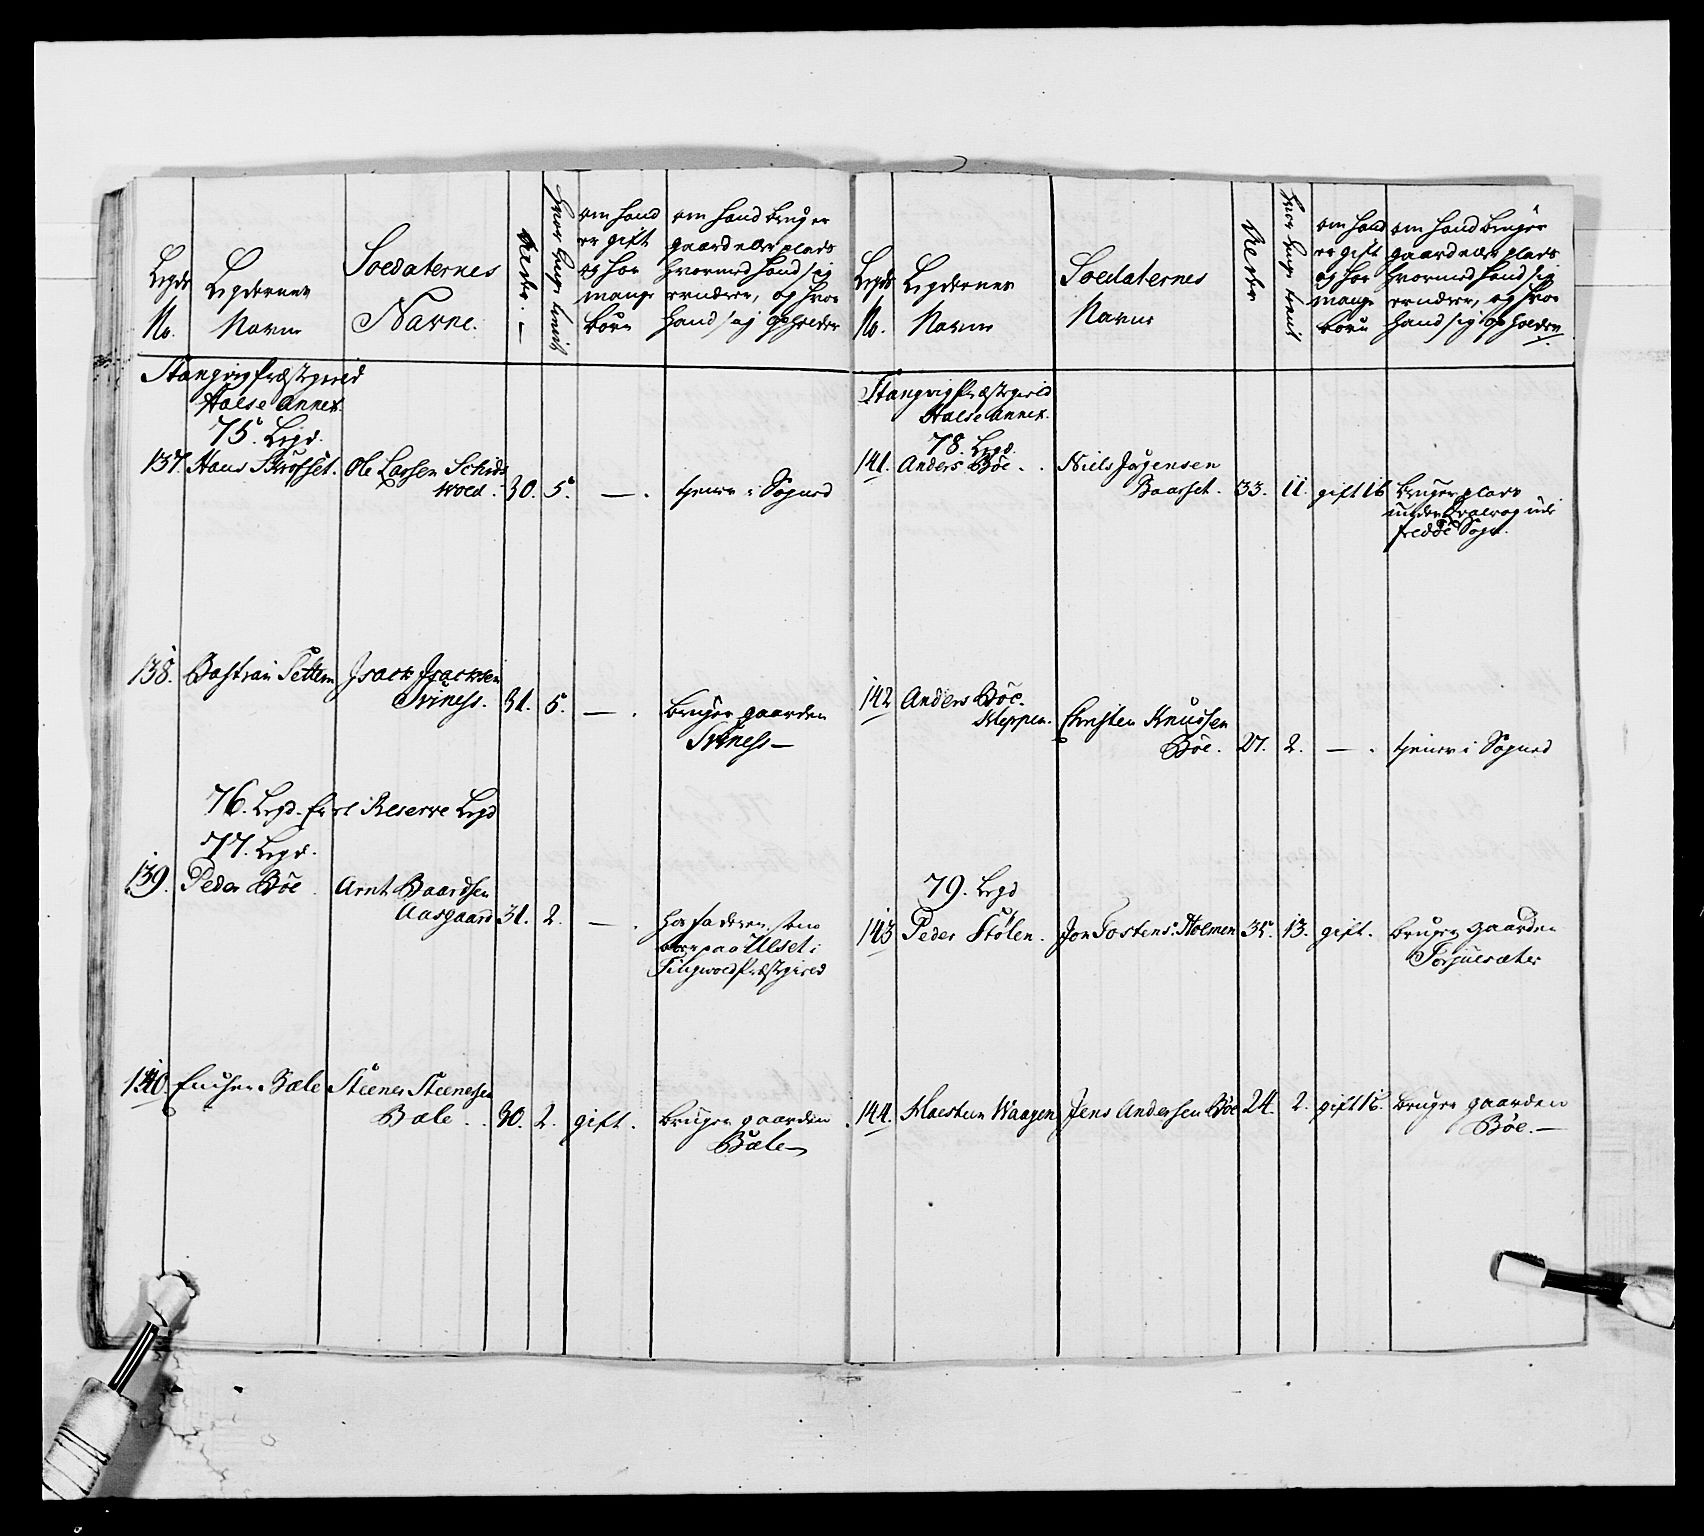 Legde No.
Legdernes Navne
Soldaternes Navne.
Alder.
Hvor længe tient
om hand er gift og hvor mange børn
om hand bruger gaard eller plads hvormed hand sig ernærer, og hvor hand sig opholder
Stangvig Præstegield
Halse Annex.
75. Legd.
137. Hans Brøsset. Ole Larsen Schids
wold. 30. 5. — . tjener i Sognet
138. Bastian Settem Isach Isachsen
Sviness. 31. 5. — . bruger gaarden
Sviness —
76. Legd. Er et Reserve Legd
77. Legd.
139. Peder Bøe. Arnt Baardsen
Aasgaard 31. 2. — . hos faderen som
boer paa Ulset i
Tingwold Præstegield
140. Einer Bæle Steener Steenersen
Bæle. 30. 2. gift. bruger gaarden
Bæle
Legde No.
Legdernes Navne
Soldaternes Navne
Alder
Hvor længe tient
om hand er gift og hvor mange børn
om hand bruger gaard eller plads hvormed hand sig ernærer, og hvor hand sig opholder
Stangvig Præstegield
Halse Annex.
78. Legd.
141. Anders Bøe. Niels Jørgensen
Baasset. 33. 11. gift 1 b bruger plads
under
Sogn.
142 Anders Bøe.
Kleppen. Christen Knudsen
Bøe. 27. 2. — . tjener i Sognet
79. Legd
143 Peder Stølen. Jon Tostens: Holmen 35. 13. gift. bruger gaarden
Torjulsæter
144. Halsten Waagen Jens Andersen Bøe 24. 2. gift 1 b. bruger gaarden
Bøe. —